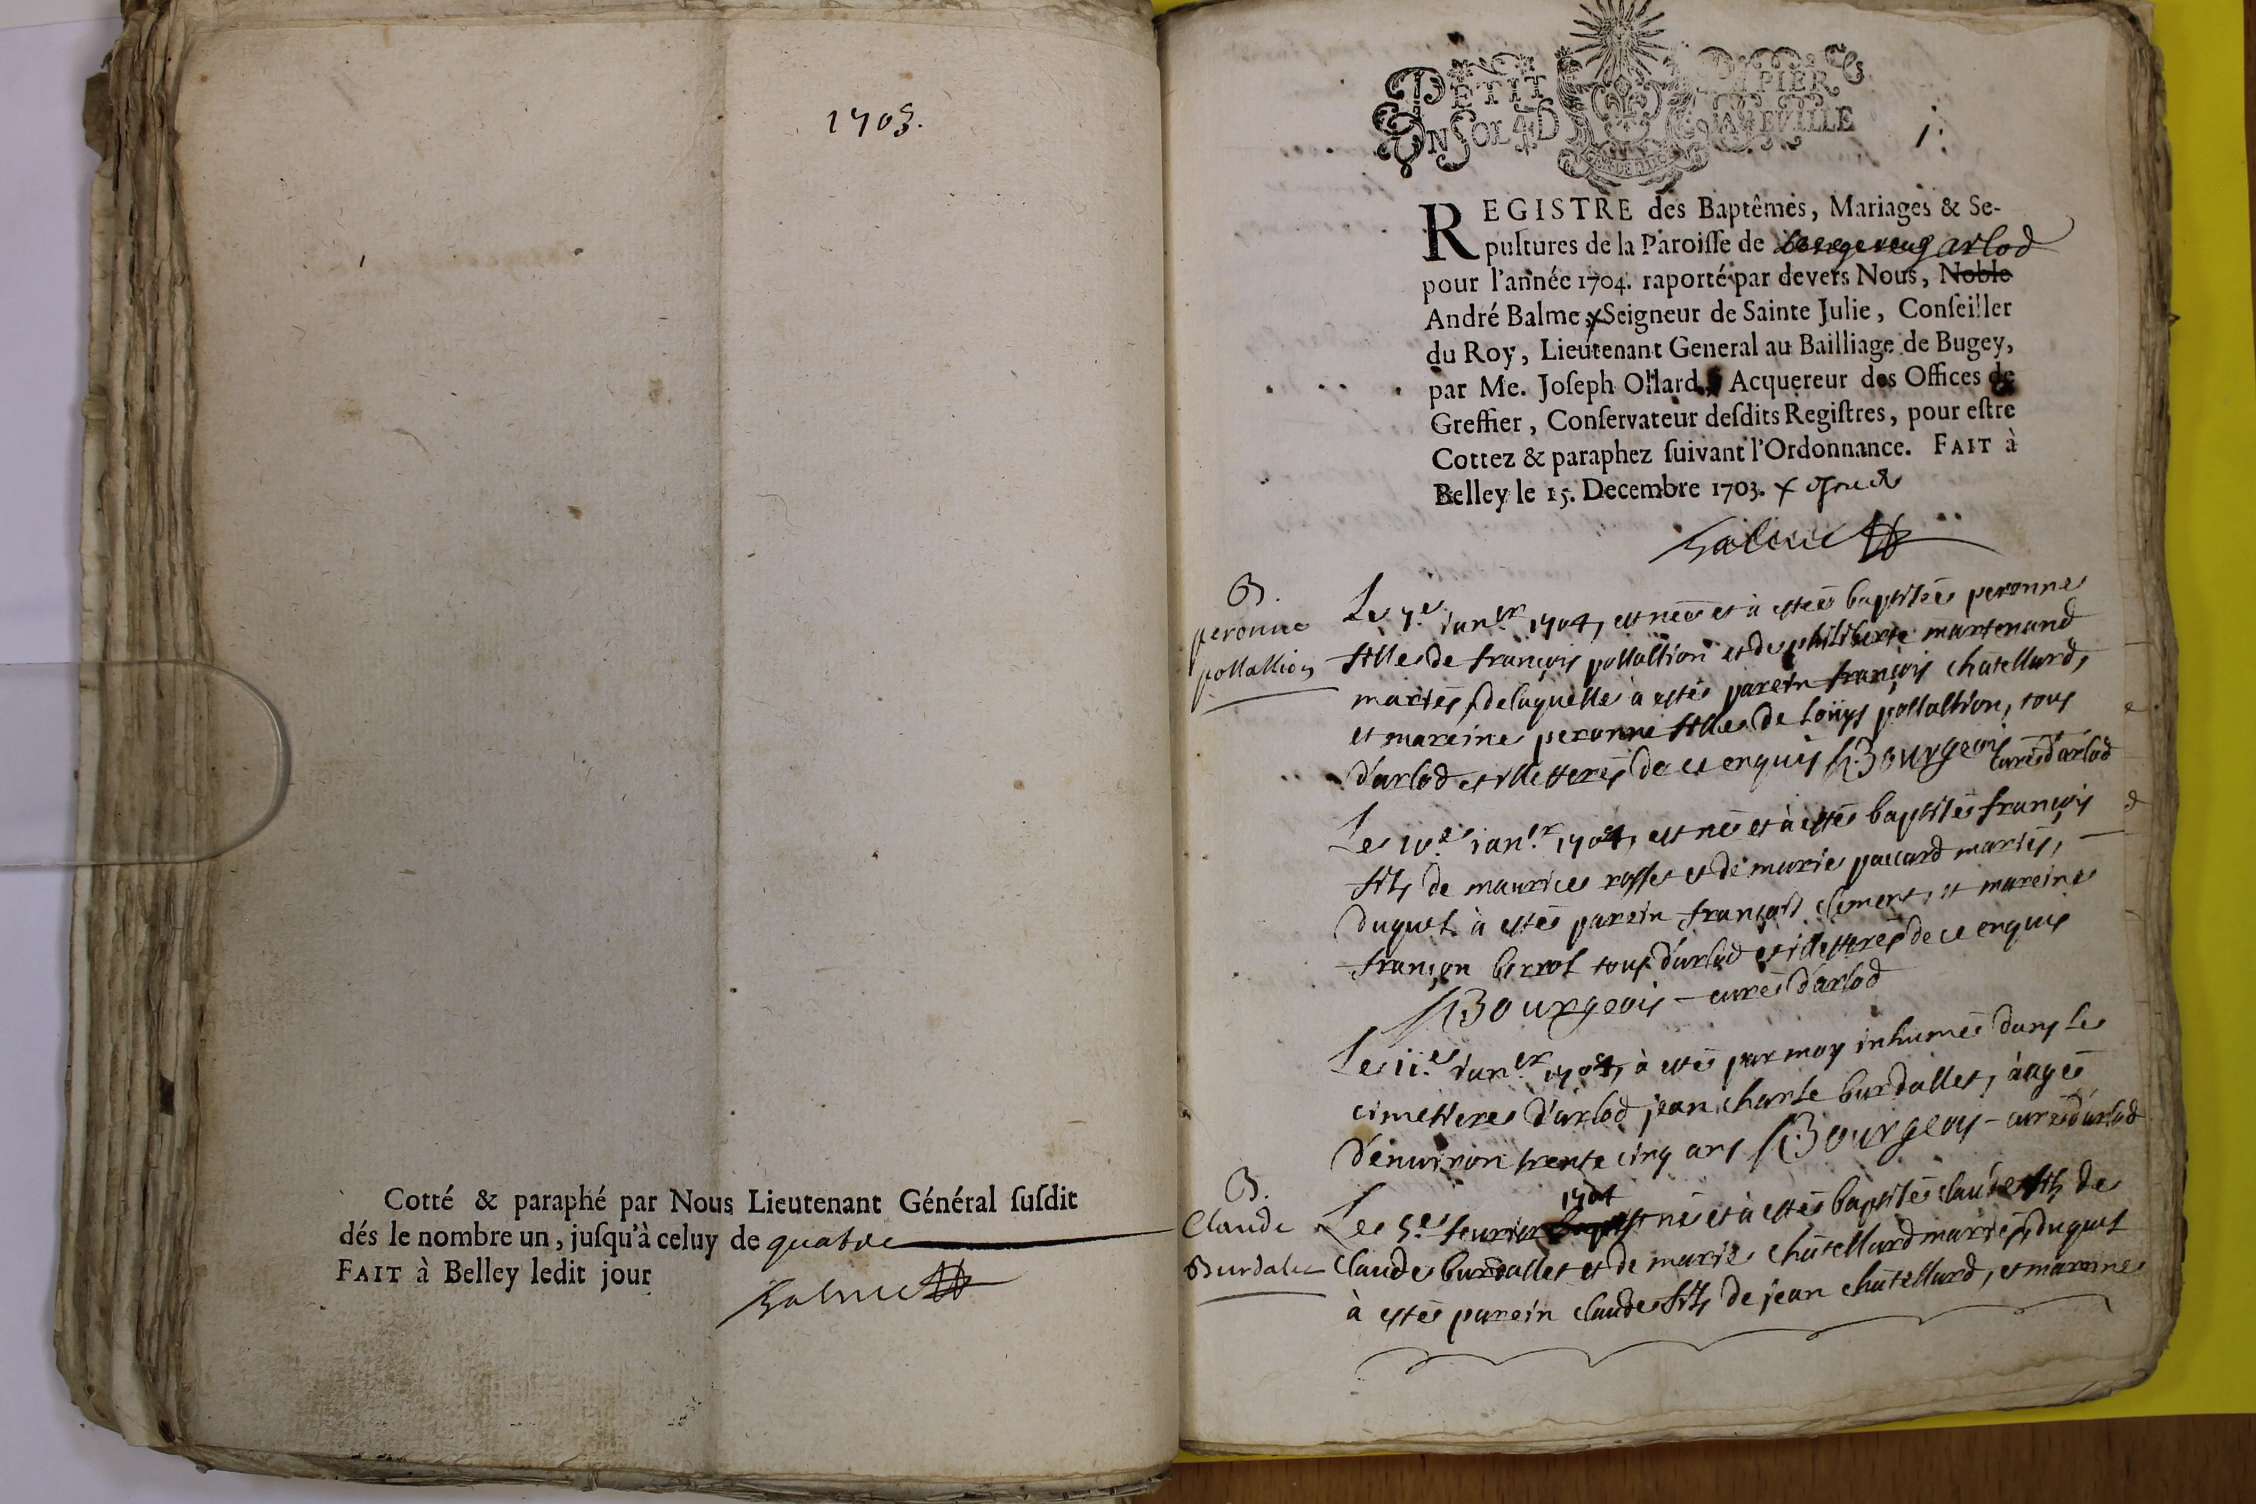 1703.
Cotté & paraphé par Nous Lieutenant Général ſuſdit
dés le nombre un, juſqu'à celuy de quatre
FAIT à Belley ledit jour
Balme
PETIT PAPIER
UN SOL 4 D LA FEUILLE
1.
REGISTRE des Baptêmes, Mariages & Se-
pultures de la Paroiſſe de arlod
pour l'année 1704. raporté par devers Nous, Noble
André Balme, Seigneur de Sainte Julie, Conſeiller
du Roy, Lieutenant General au Bailliage de Bugey,
par Me. Joſeph Ollard, Acquereur des Offices de
Greffier, Conſervateur deſdits Regiſtres, pour eſtre
Cottez & paraphez ſuivant l'Ordonnance. FAIT à
Belley le 15. Decembre 1703. x
Balme
B.
peronne
pollallion
Le 7e. ianer 1704, est neé et à esteé baptiseé peronne
fille de françois pollallion et de philiberte martenand
mariés, de laquelle à esté parein françois châtellard,
et mareine peronne fille de Loüys pollallion, tous
d'arlod et illetterés de ce enquis Bourgeois curé d'arlod
Le 10e ianer 1704, est né et à esté baptisé françois
fils de maurice rosset et de marie paccard mariés,
duquel à esté parein françois clement, et mareine
françon berrot tous d'arlod et illetterés de ce enquis
Bourgeois curé d'arlod
Le 11e. ianer 1704, à esté par moy inhumé dans le
cimettiere d'arlod jean charle burdallet, âagé
d'enuiron trente cinq ans Bourgeois curé d'arlod
B.
Claude
Burdalet
1704
Le 5e. feurier est né et à esté baptisé claude fils de
claude burdallet et de marie châtellard mariés, duquel
à esté parein claude fils de jean châtellard, et mareine